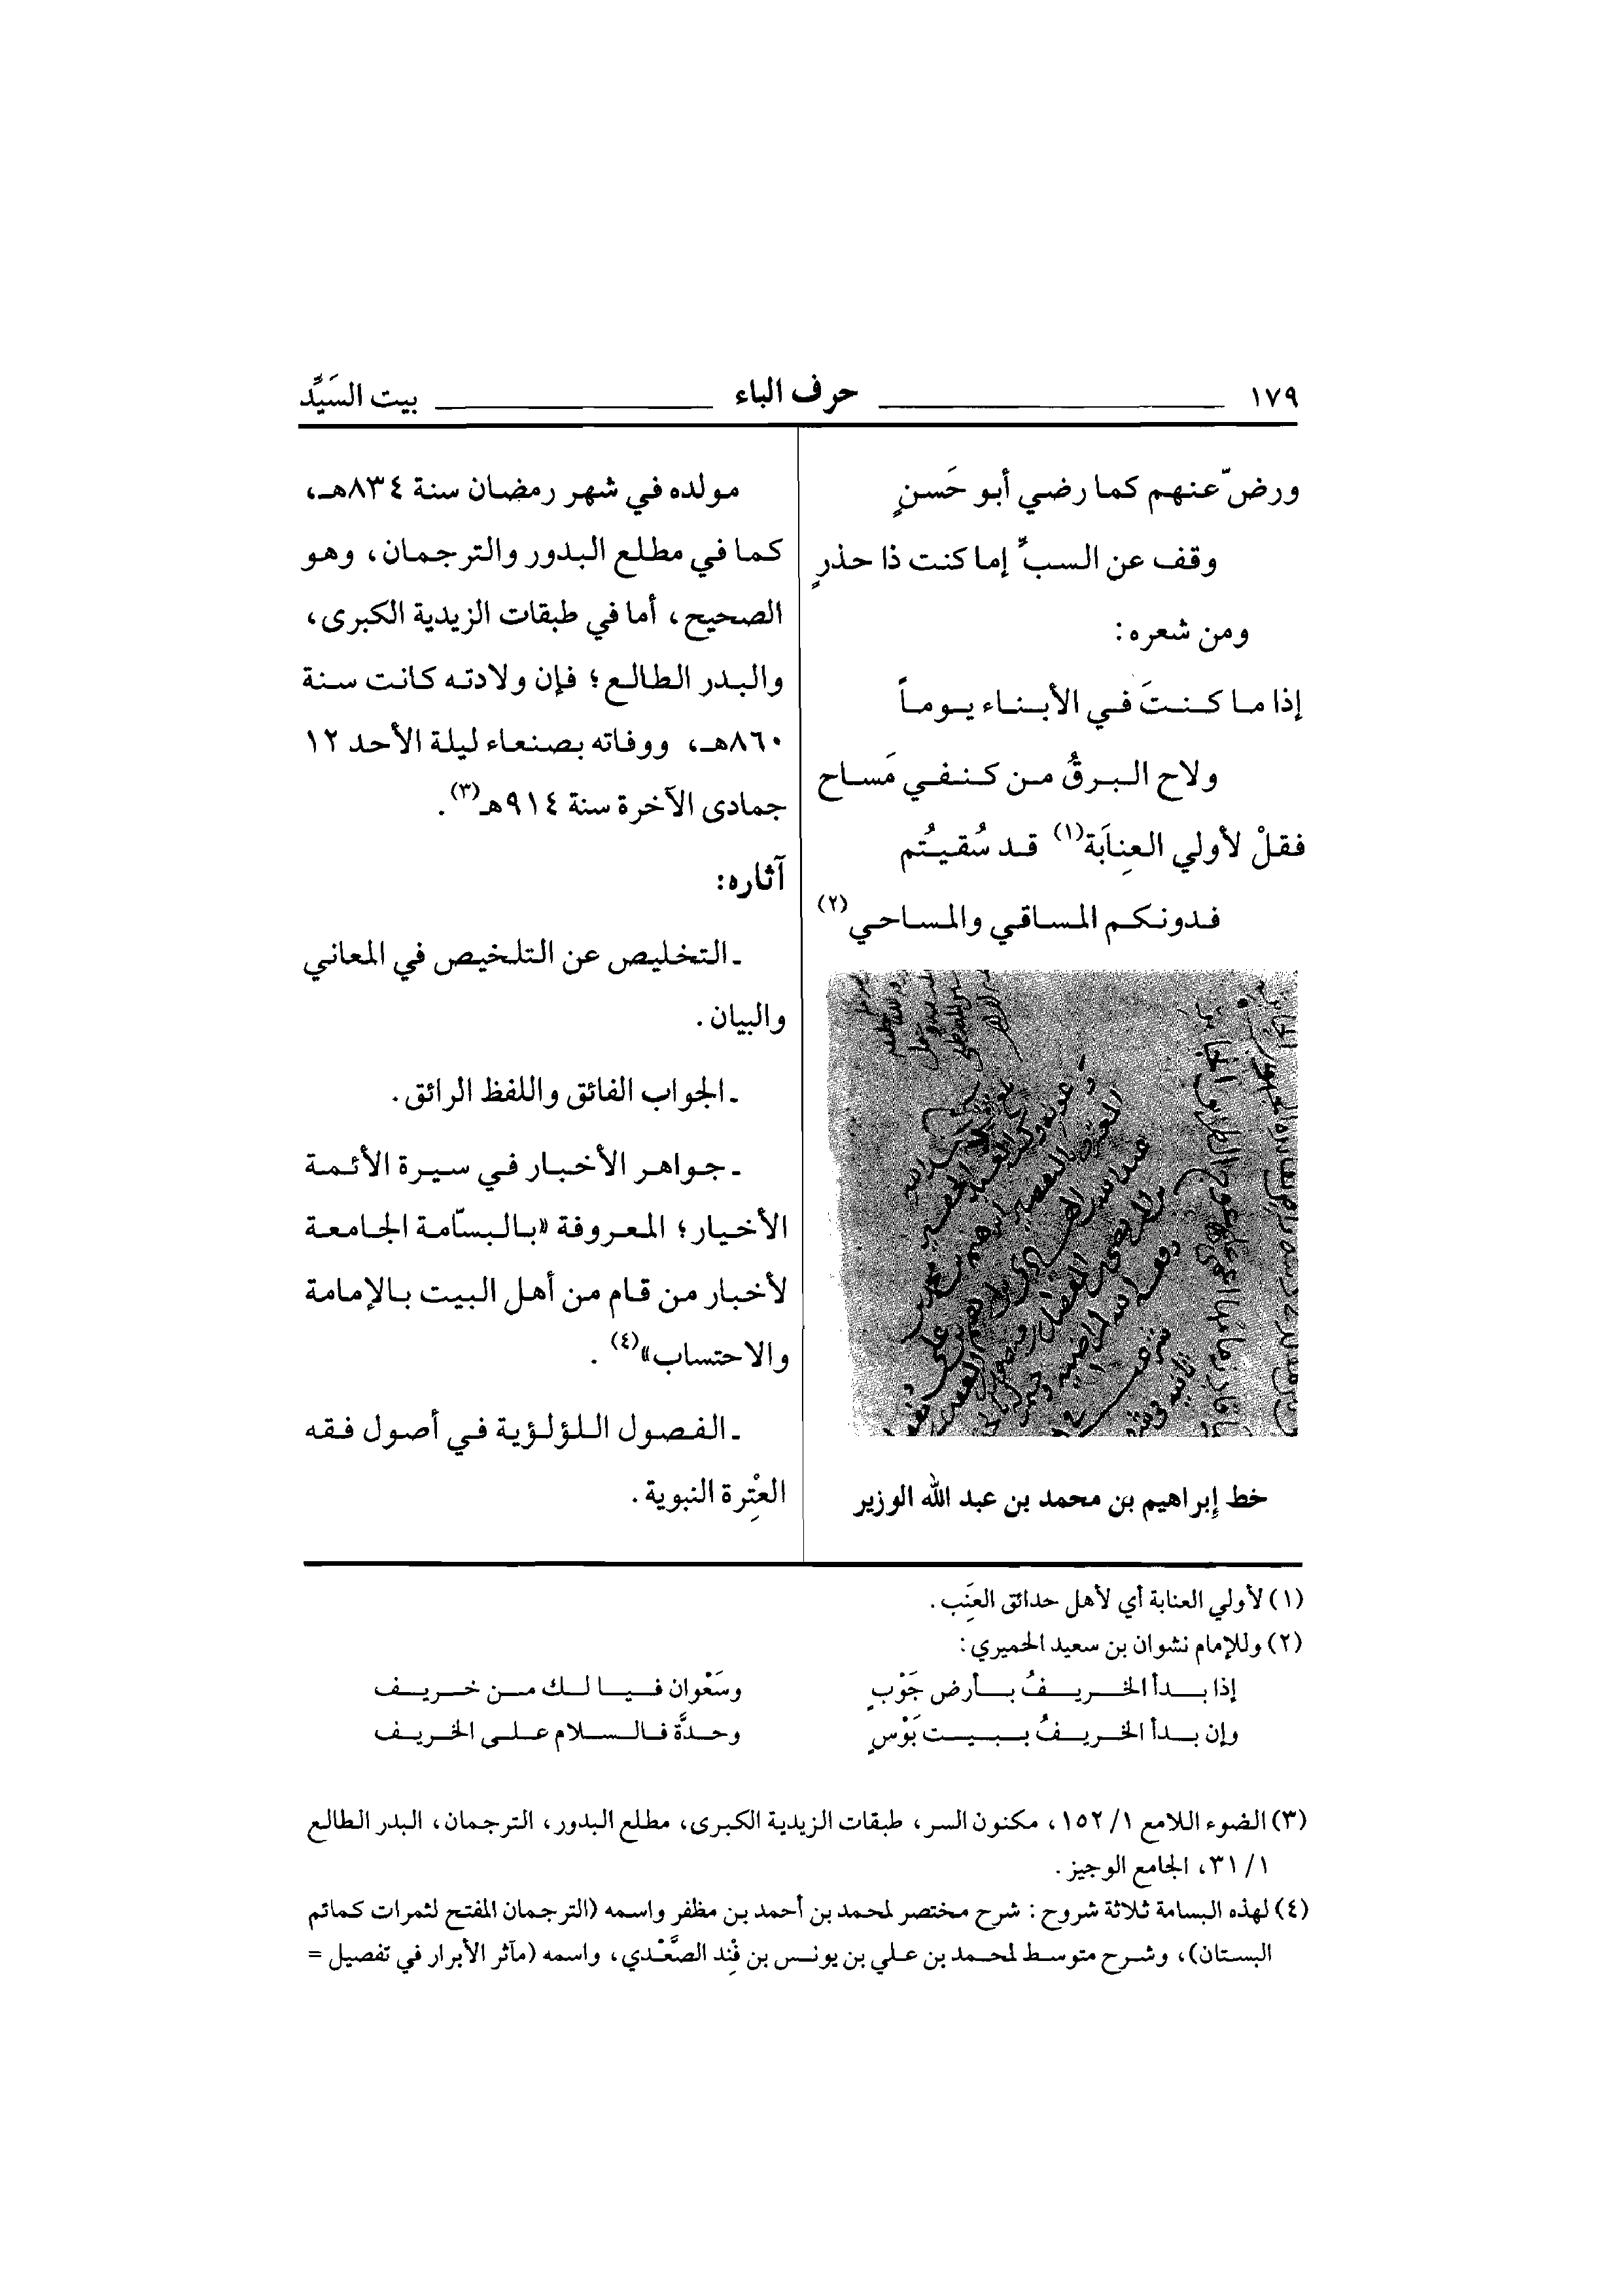 ١٧٩ حرف الباء بيت السَيِّد
ورضّ عنهم كما رضي أبو حَسنٍ
وقف عن السبِّ إما كنت ذا حذرٍ
ومن شعره:
إذا ما كنتَ في الأبناء يوماً
ولاح البرقُ من كنفي مَساح
فقلْ لأولي العِنابَة(١) قد سُقيتُم
فدونكم المساقي والمساحي(٢)
خط إبراهيم بن محمد بن عبد الله الوزير
مولده في شهر رمضان سنة ٨٣٤هـ،
كما في مطلع البدور والترجمان، وهو
الصحيح، أما في طبقات الزيدية الكبرى،
والبدر الطالع؛ فإن ولادته كانت سنة
٨٦٠هـ، ووفاته بصنعاء ليلة الأحد ١٢
جمادى الآخرة سنة ٩١٤هـ(٣).
آثاره:
ـ التخليص عن التلخيص في المعاني
والبيان.
ـ الجواب الفائق واللفظ الرائق.
ـ جواهر الأخبار في سيرة الأئمة
الأخيار؛ المعروفة «بالبسّامة الجامعة
لأخبار من قام من أهل البيت بالإمامة
والاحتساب»(٤).
ـ الفصول اللؤلؤية في أصول فقه
العِتْرة النبوية.
(١) لأولي العنابة أي لأهل حدائق العِنَب.
(٢) وللإمام نشوان بن سعيد الحميري:
إذا بدأ الخريفُ بأرض جَوْبٍ وسَعْوان فيا لك من خريف
وإن بدأ الخريفُ ببيت بَوْسٍ وحدَّة فالسلام على الخريف
(٣) الضوء اللامع ١/ ١٥٢، مكنون السر، طبقات الزيدية الكبرى، مطلع البدور، الترجمان، البدر الطالع
١/ ٣١، الجامع الوجيز.
(٤) لهذه البسامة ثلاثة شروح: شرح مختصر لمحمد بن أحمد بن مظفر واسمه (الترجمان المفتح لثمرات كمائم
البستان)، وشرح متوسط لمحمد بن علي بن يونس بن فِنْد الصَّعْدي، واسمه (مآثر الأبرار في تفصيل =